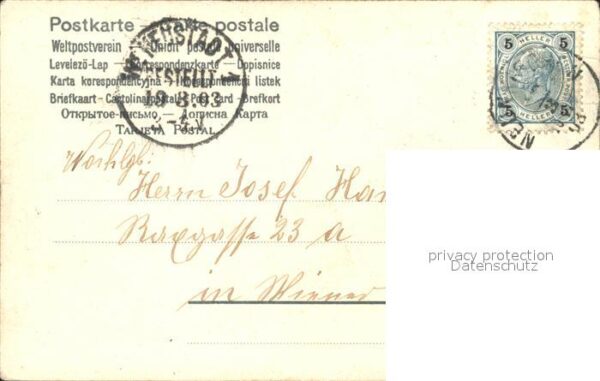 Postkarte — Carte postale
Weltpostverein — Union postale universelle
Levelező-Lap — Korrespondenzkarte — Dopisnice
Karta korespondencyjna — Korespondenční listek
Briefkaart — Cartolina postale — Post card — Brefkort
Открытое письмо — Дописна Карта
Tarjeta Postal
NEUSTADT 1
BESTELLT
19. 8. 03
5 HELLER 5
5 HELLER 5
Wohlgb.
Herrn Josef
Raxgasse 23 a
in Wiener
privacy protection
Datenschutz